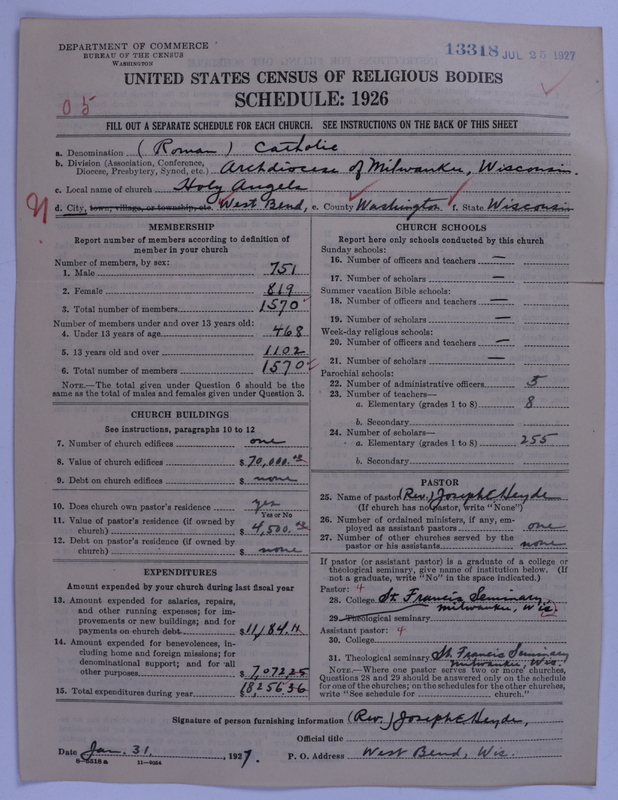 DEPARTMENT OF COMMERCE
BUREAU OF THE CENSUS
WASHINGTON
13318 JUL 25 1927
UNITED STATES CENSUS OF RELIGIOUS BODIES
SCHEDULE: 1926
05
FILL OUT A SEPARATE SCHEDULE FOR EACH CHURCH. SEE INSTRUCTIONS ON THE BACK OF THIS SHEET
a. Denomination (Roman) Catholic
b. Division (Association, Conference, Diocese, Presbytery, Synod, etc.) Archdiocese of Milwaukee, Wisconsin.
c. Local name of church Holy Angels
d. City, town, village, or township, etc. West Bend, e. County Washington f. State Wisconsin
MEMBERSHIP
Report number of members according to definition of
member in your church
Number of members, by sex:
1. Male 751
2. Female 819
3. Total number of members 1570
Number of members under and over 13 years old:
4. Under 13 years of age 468
5. 13 years old and over 1102
6. Total number of members 1570
NOTE.—The total given under Question 6 should be the
same as the total of males and females given under Question 3.
CHURCH BUILDINGS
See instructions, paragraphs 10 to 12
7. Number of church edifices one
8. Value of church edifices $ 70,000.00
9. Debt on church edifices $ none
10. Does church own pastor's residence yes
Yes or No
11. Value of pastor's residence (if owned by
church) $ 4,500.00
12. Debt on pastor's residence (if owned by
church) $ none
EXPENDITURES
Amount expended by your church during last fiscal year
13. Amount expended for salaries, repairs,
and other running expenses; for im-
provements or new buildings; and for
payments on church debt $ 11184.11
14. Amount expended for benevolences, in-
cluding home and foreign missions; for
denominational support; and for all
other purposes $ 7,072.25
15. Total expenditures during year $ 18256.36
CHURCH SCHOOLS
Report here only schools conducted by this church
Sunday schools:
16. Number of officers and teachers —
17. Number of scholars —
Summer vacation Bible schools:
18. Number of officers and teachers —
19. Number of scholars —
Week-day religious schools:
20. Number of officers and teachers —
21. Number of scholars —
Parochial schools:
22. Number of administrative officers 5
23. Number of teachers—
a. Elementary (grades 1 to 8) 8
b. Secondary
24. Number of scholars—
a. Elementary (grades 1 to 8) 255
b. Secondary
PASTOR
25. Name of pastor (Rev.) Joseph E Heyde
(If church has no pastor, write "None")
26. Number of ordained ministers, if any, em-
ployed as assistant pastors one
27. Number of other churches served by the
pastor or his assistants none
If pastor (or assistant pastor) is a graduate of a college or
theological seminary, give name of institution below. (If
not a graduate, write "No" in the space indicated.)
Pastor: 4
28. College St. Francis Seminary,
Milwaukee, Wis.
29. Theological seminary
Assistant pastor: 4
30. College
31. Theological seminary St. Francis Seminary
Milwaukee, Wis.
NOTE.—Where one pastor serves two or more churches,
Questions 28 and 29 should be answered only on the schedule
for one of the churches; on the schedules for the other churches,
write "See schedule for church."
Signature of person furnishing information (Rev.) Joseph E Heyde,
Official title
Date Jan. 31, 1927. P. O. Address West Bend, Wis.
8—5518 a 11—9034